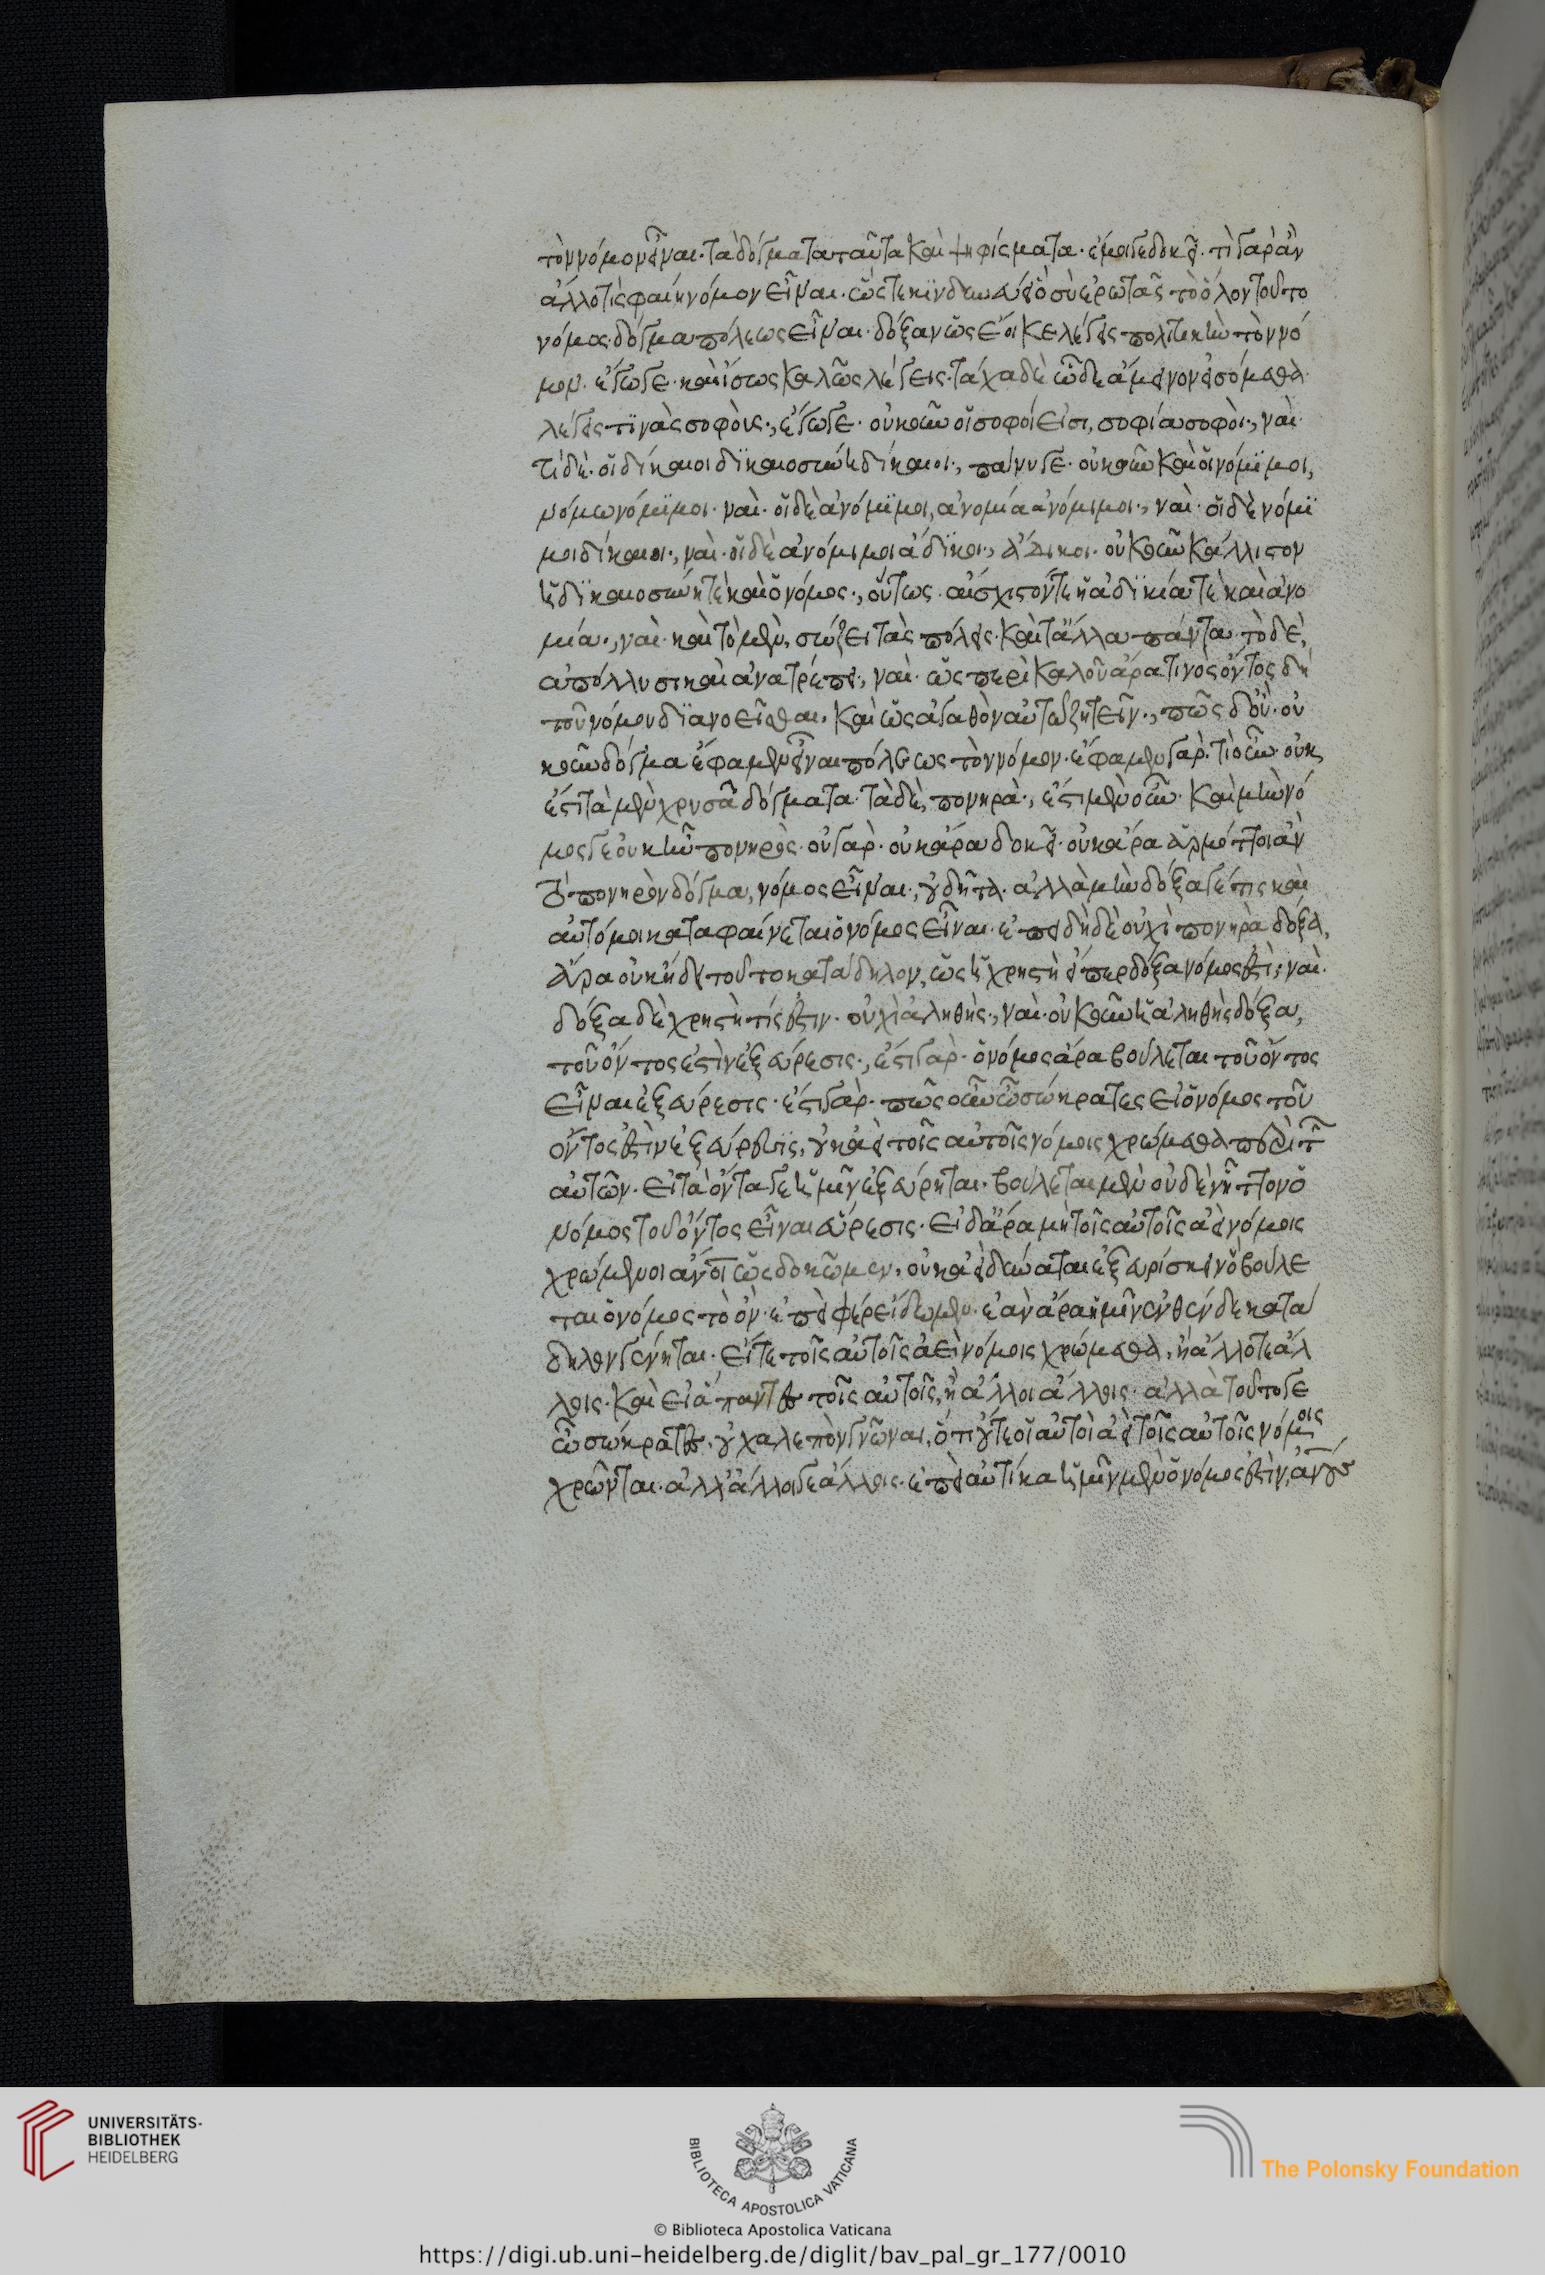 τὸν νόμον εἶναι· τὰ δόγματα ταῦτα καὶ ψηφίσματα· ἐμοιγε δοκεῖ· τί γὰρ ἂν
ἄλλο τὶς φαίη νόμον εἶναι· ὥς τε κϊνδυνεύει ὃ σὺ ἐρωτᾶς τὸ ὅλον τοῦτο
νόμος· δόγμα πόλεως εἶναι· δόξαν ὡς ἔοικε λέγεις πολιτικὴν τὸν νό
μον· ἔγωγε· καὶ ἴσως καλῶς λέγεις· τάχα δὲ ὧδε ἄμεινον εἰσόμεθα·
λέγεις τϊνὰς σοφοὺς·, ἔγωγε· οὐκοῦν οἱ σοφοί εἰσι, σοφία σοφοὶ·, ναὶ·
τί δὲ· οἱ δίκαιοι δϊκαιοσύνη δίκαιοι·, πάνυ γε· οὐκοῦν καὶ οἱ νόμϊμοι,
νόμω νόμϊμοι· ναὶ· οἱ δὲ ἀνόμϊμοι, ἀνομία ἀνόμιμοι·, ναὶ· οἱ δὲ νόμϊ
μοι δίκαιοι·, ναὶ· οἱ δὲ ἀνόμιμοι ἄδϊκοι·, ἄδικοι· οὐκοῦν κάλλιστον
ἡ δϊκαιοσύνη τὲ καὶ ὁ νόμος·, οὕτως· αἴσχιστόν τε ἡ ἀδϊκία τὲ καὶ ἀνο
μία·, ναὶ· καὶ τὸ μὲν, σώζει τὰς πόλεις· καὶ τἄλλα πάντα· τὸ δὲ,
ἀπόλλυσι καὶ ἀνατρέπει·, ναὶ· ὡς περὶ καλοῦ ἄρα τινὸς ὄντος δεῖ
τοῦ νόμου δϊανοεῖσθαι· καὶ ὡς ἀγαθὸν αὐτὸ ζητεῖν·, πῶς δ' οὔ· οὐ
κοῦν δόγμα ἔφαμεν εἶναι πόλεως τὸν νόμον· ἔφαμεν γὰρ· τί οὖν· οὐκ
ἔστι τὰ μὲν χρηστὰ δόγματα· τὰ δὲ, πονηρὰ·, ἔστι μὲν οὖν· καὶ μὴν νό
μος γε οὐκ ἦν πονηρὸς· οὐ γὰρ· οὐκ ἄρα δοκεῖ· οὐκ ἄρα ἁρμόττοι ἂν
τὸ πονηρὸν δόγμα, νόμος εἶναι·, οὐ δῆτα· ἀλλὰ μὴν δόξα γέ τις καὶ
αὐτό μοι καταφαίνεται ὁ νόμος εἶναι· ἐπειδὴ δὲ οὐχὶ πονηρὰ δόξα,
ἆρα οὐκ ἤδη τοῦτο κατάδηλον, ὡς ἡ χρηστὴ εἴπερ δόξα νόμος ἐστὶ; ναὶ·
δόξα δὲ χρηστὴ τίς ἐστιν· οὐχὶ ἀληθὴς·, ναὶ· οὐκοῦν ἡ ἀληθὴς δόξα,
τοῦ ὄντος ἐστὶν ἐξεύρεσις·, ἔστι γὰρ· ὁ νόμος ἄρα βούλεται τοῦ ὄντος
εἶναι ἐξεύρεσις· ἔστι γὰρ· πῶς οὖν ὦ σώκρατες εἰ ὁ νόμος τοῦ
ὄντος ἐστὶν ἐξεύρεσις, οὐκ ἀεὶ τοῖς αὐτοῖς νόμοις χρώμεθα περὶ τῶν
αὐτῶν· εἰ τὰ ὄντα γε ἡμῖν ἐξεύρηται· βούλεται μὲν οὐδὲν ἧττον ὁ
νόμος τοῦ ὄντος εἶναι εὕρεσις· εἰ δ' ἄρα μὴ τοῖς αὐτοῖς ἀεὶ νόμοις
χρώμενοι ἄνοι ὡς δοκῶμεν, οὐκ ἀεὶ δύναται ἐξευρίσκειν ὃ βούλε
ται ὁ νόμος τὸ ὂν· ἐπεὶ φέρε ἴδωμεν· ἐὰν ἄρα ἡμῖν ἐνθένδε κατά
δηλον γένηται· εἴτε τοῖς αὐτοῖς ἀεὶ νόμοις χρώμεθα, ἢ ἄλλοτε ἄλ
λοις· καὶ εἰ ἅπαντες τοῖς αὐτοῖς, ἢ ἄλλοι ἄλλοις· ἀλλὰ τοῦτο γε
ὦ σώκρατες, οὐ χαλεπὸν γνῶναι, ὅτι οὔτε οἱ αὐτοὶ ἀεὶ τοῖς αὐτοῖς νόμοις
χρῶνται· ἀλλ' ἄλλοι γε ἄλλοις· ἐπεὶ αὐτίκα ἡμῖν μὲν ὁ νόμος ἐστὶν, ἀνου
UNIVERSITÄTS-
BIBLIOTHEK
HEIDELBERG
BIBLIOTECA APOSTOLICA VATICANA
The Polonsky Foundation
© Biblioteca Apostolica Vaticana
https://digi.ub.uni-heidelberg.de/diglit/bav_pal_gr_177/0010